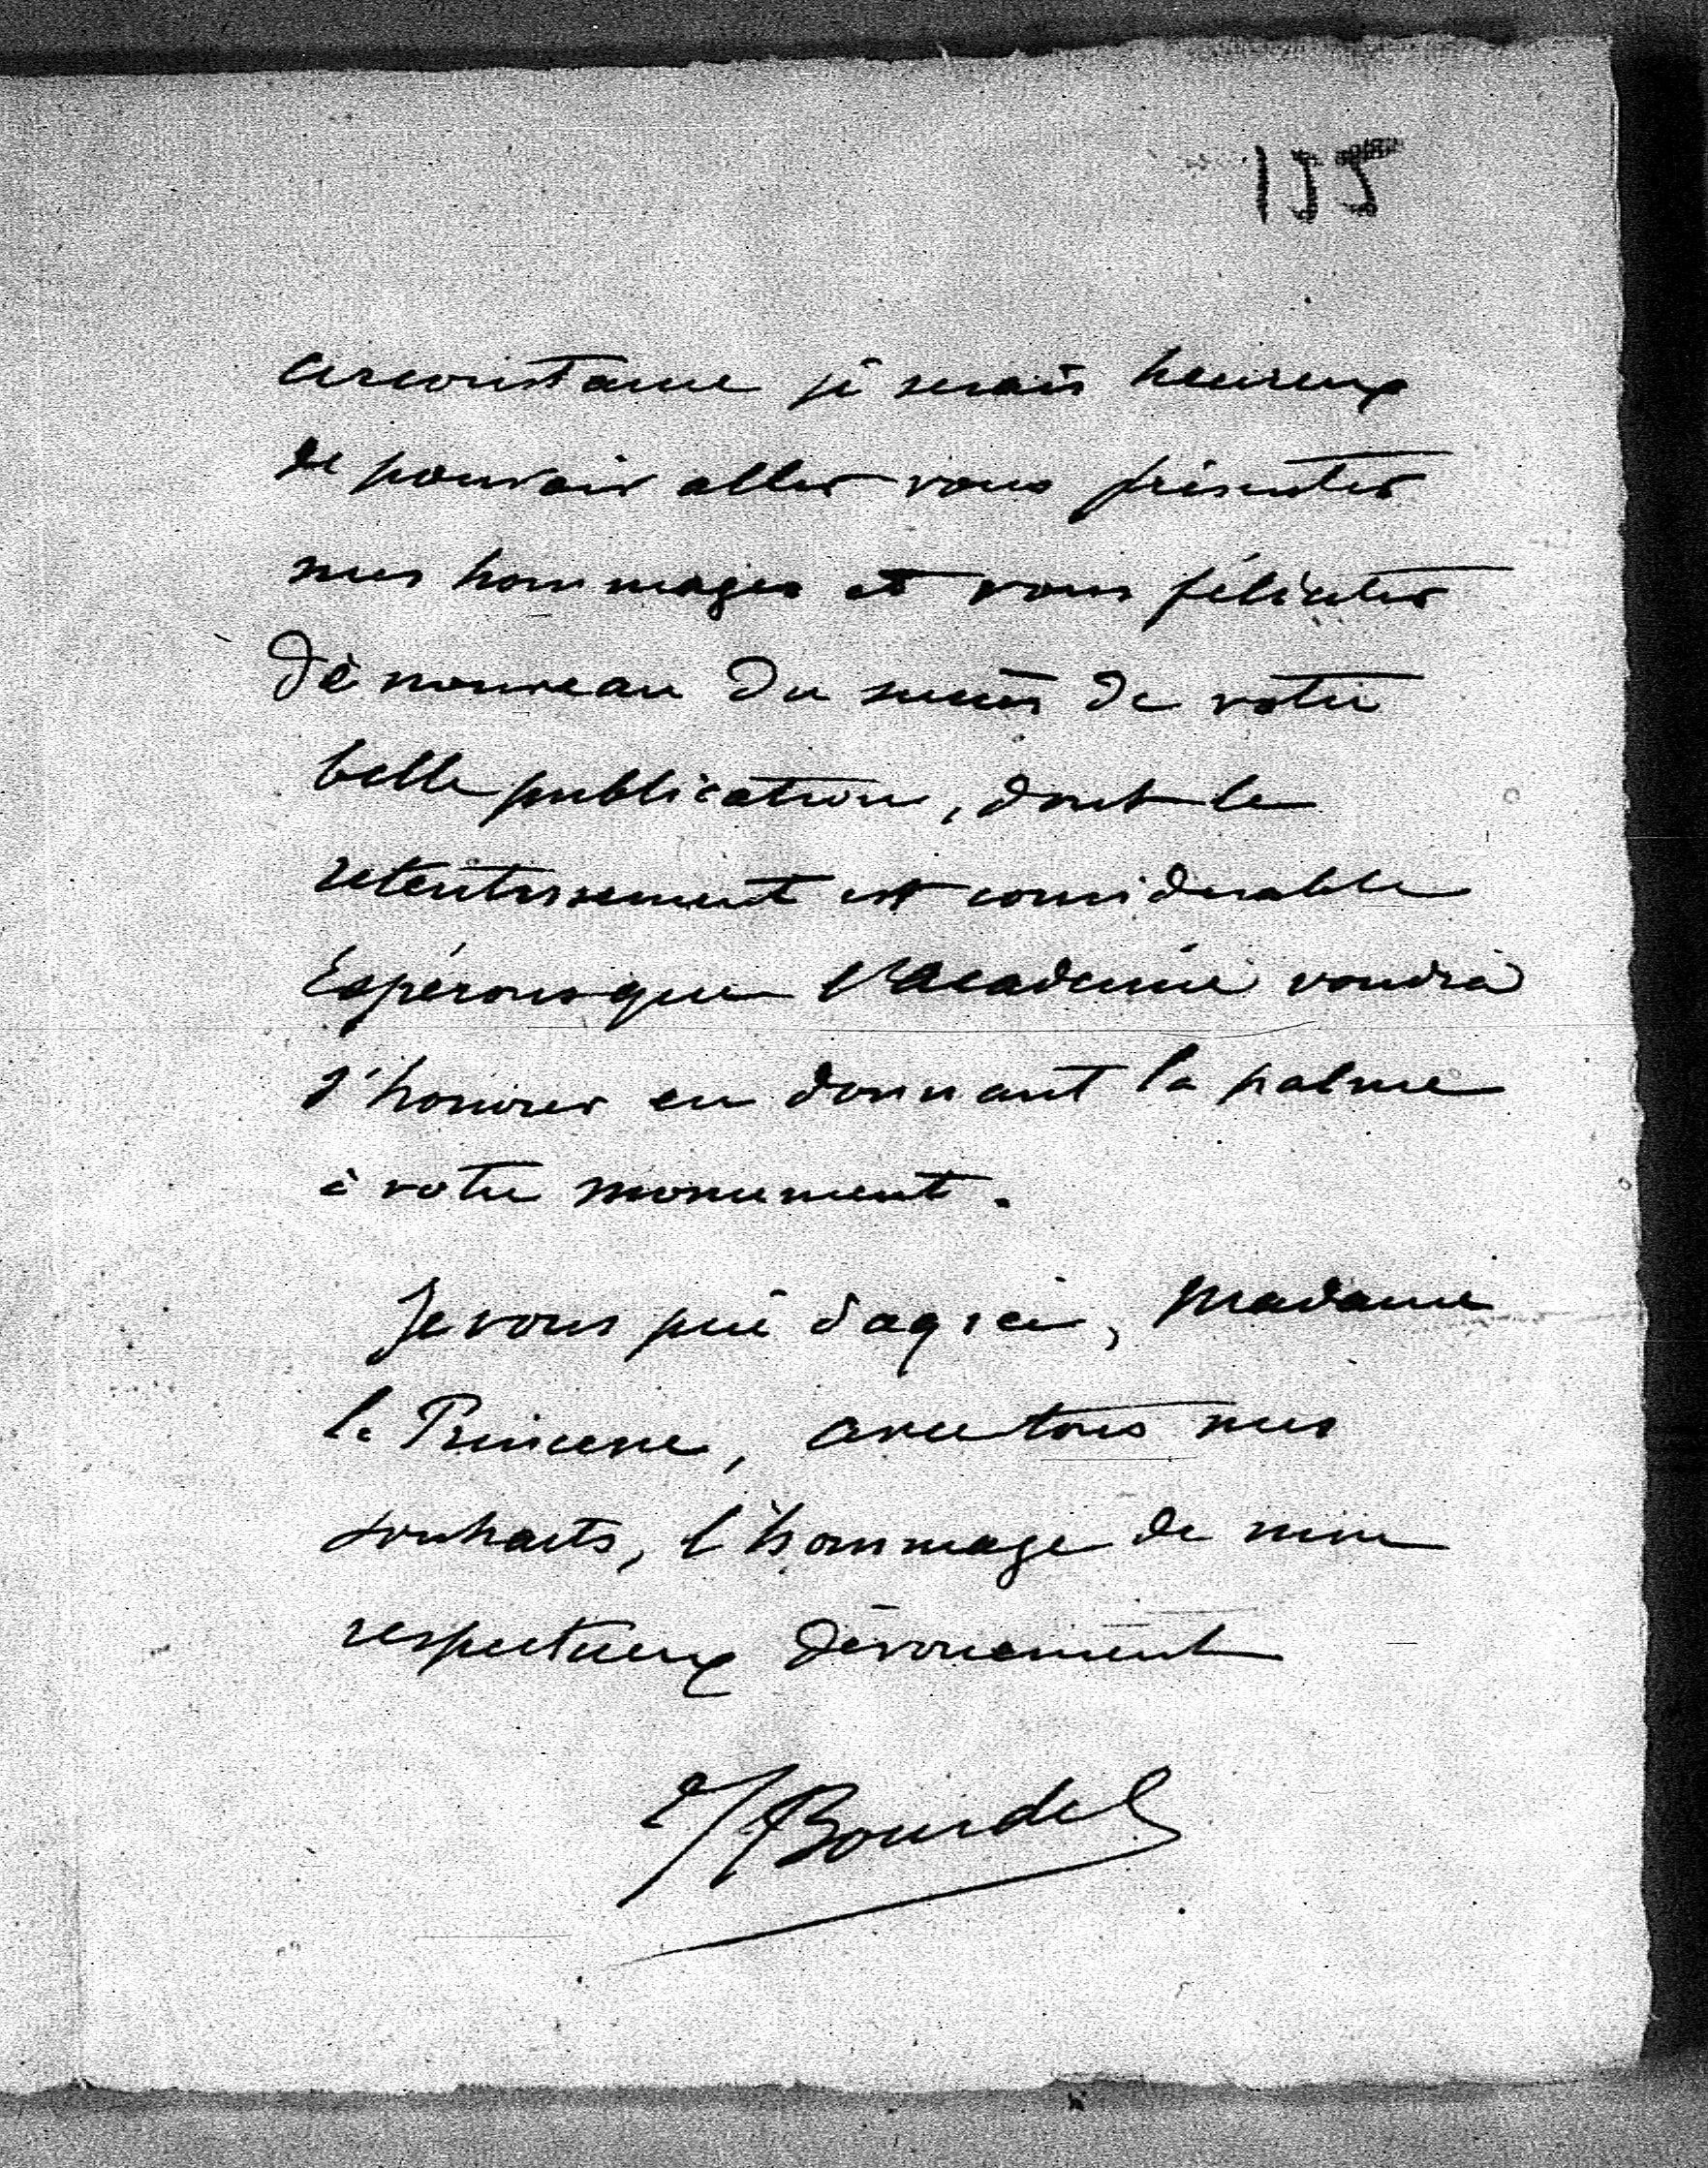 155
circonstance je serais heureux
de pouvoir aller vous présenter
mes hommages et vous féliciter
de nouveau du succès de votre
belle publication, dont le
retentissement est considerable
Espérons que l'Académie voudra
s'honorer en donnant la palme
à votre monument.
Je vous prie d'agréer, Madame
la Princesse, avec tous mes
souhaits, l'hommage de mon
respectueux dévouement
J Bourdel